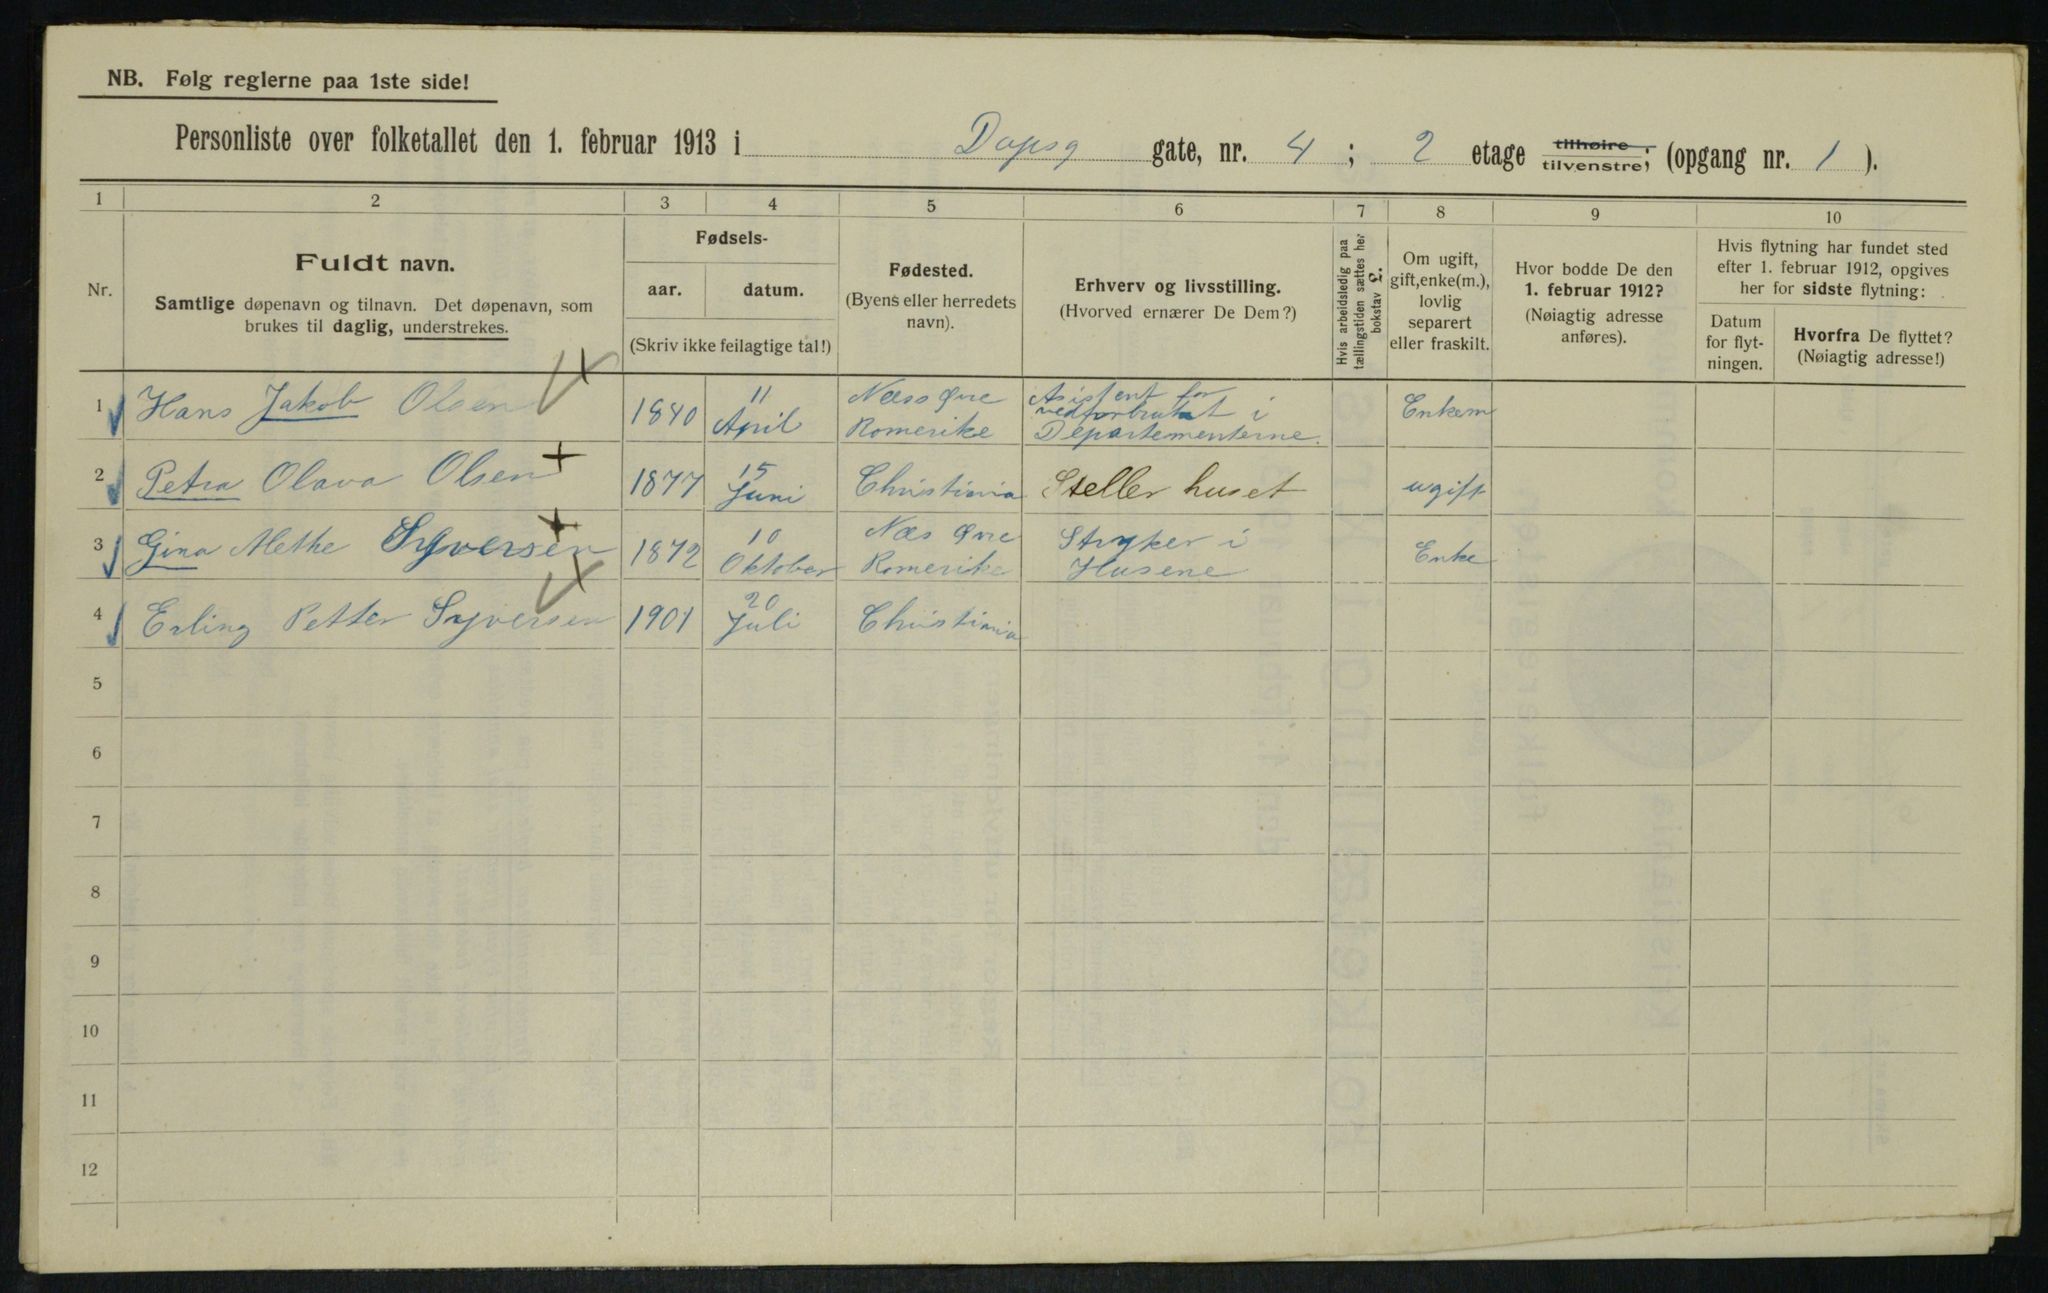 NB. Følg reglerne paa 1ste side!
Personliste over folketallet den 1. februar 1913 i Dapsg gate, nr. 4 ; 2 etage tilhøire tilvenstre; (opgang nr. 1 ).
1 2 3 4 5 6 7 8 9 10
Nr.
Fuldt navn.
Samtlige døpenavn og tilnavn. Det døpenavn, som
brukes til daglig, understrekes.
Fødsels-
aar. datum.
(Skriv ikke feilagtige tal!)
Fødested.
(Byens eller herredets
navn).
Erhverv og livsstilling.
(Hvorved ernærer De Dem?)
Hvis arbeidsledig paa
tællingstiden sættes her
bokstav L.
Om ugift,
gift, enke(m.),
lovlig
separert
eller fraskilt.
Hvor bodde De den
1. februar 1912?
(Nøiagtig adresse
anføres).
Hvis flytning har fundet sted
efter 1. februar 1912, opgives
her for sidste flytning:
Datum
for flyt-
ningen.
Hvorfra De flyttet?
(Nøiagtig adresse!)
1 Hans Jakob Olsen 1840 11 April Næss Øvre Romerike Asistent for vedforbruket i Departementerne. Enkem
2 Petra Olava Olsen 1877 15 Juni Christinia Steller huset ugift
3 Gina Alethe Syversen 1872 10 Oktober Næs Øvre Romerike Stryker i Husene Enke
4 Erling Petter Syversen 1901 20 Juli Christinia
5
6
7
8
9
10
11
12